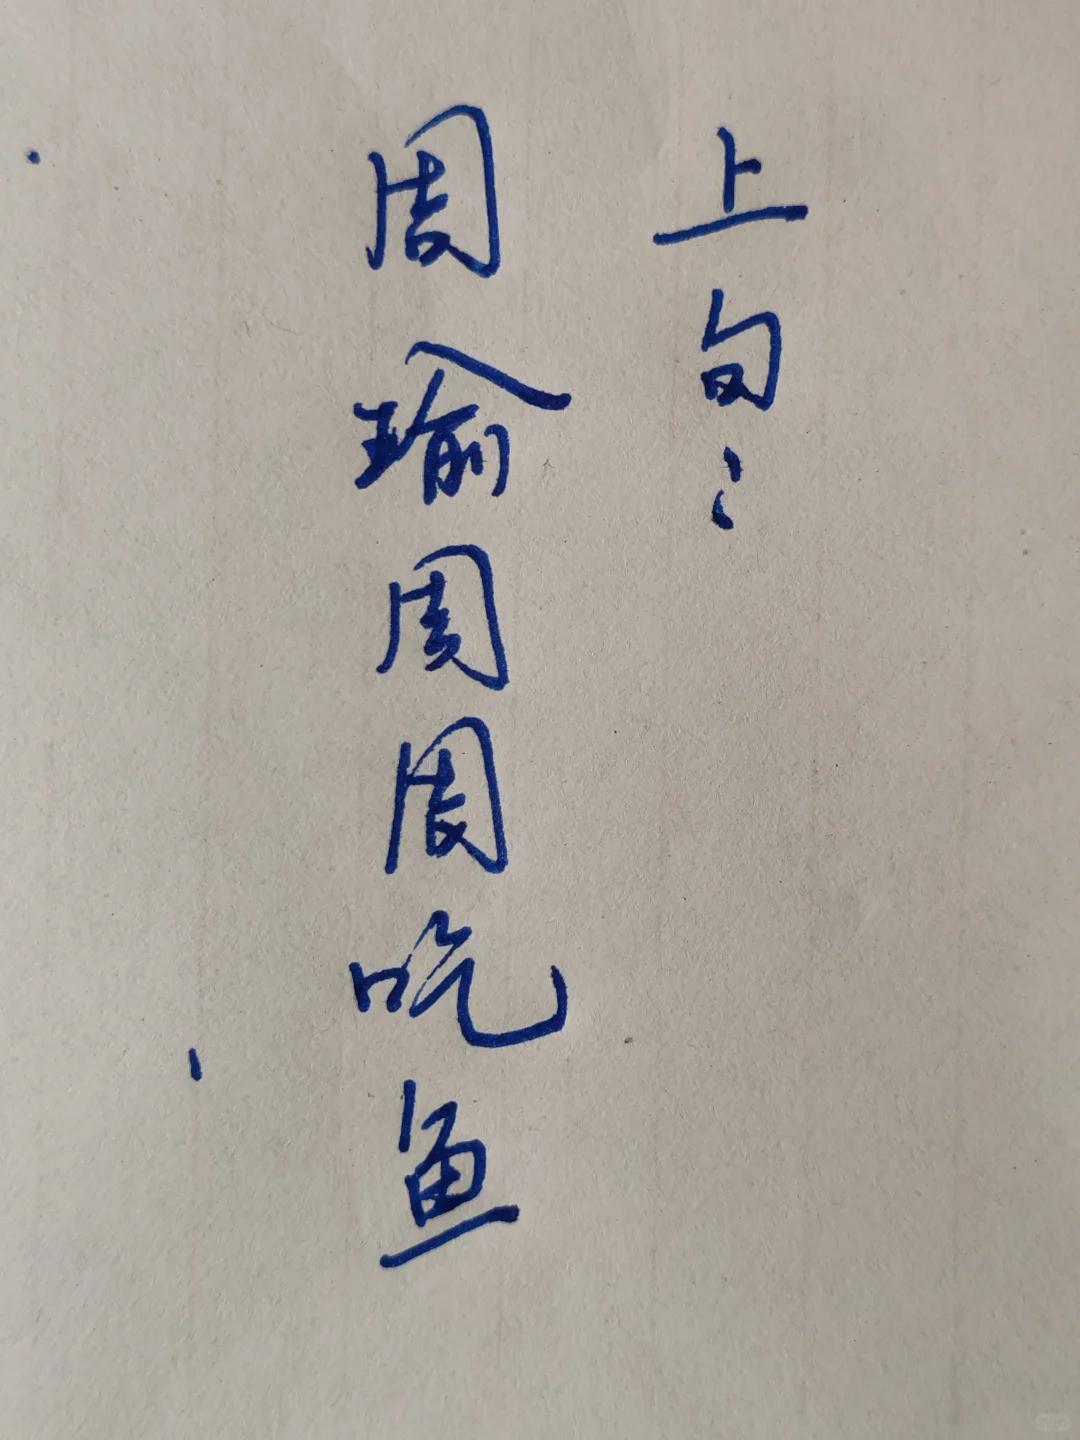 上句：
周瑜周周吃鱼